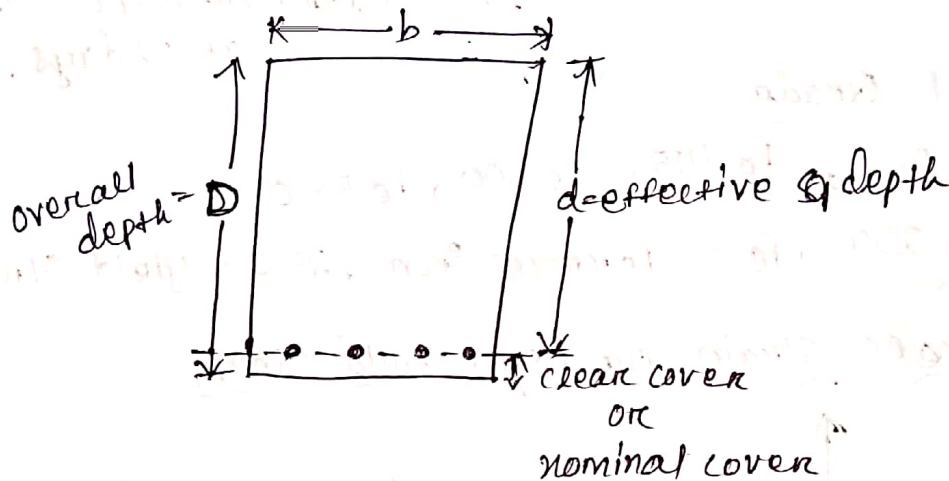 b
overall
depth = D
d = effective depth
clear cover
or
nominal cover